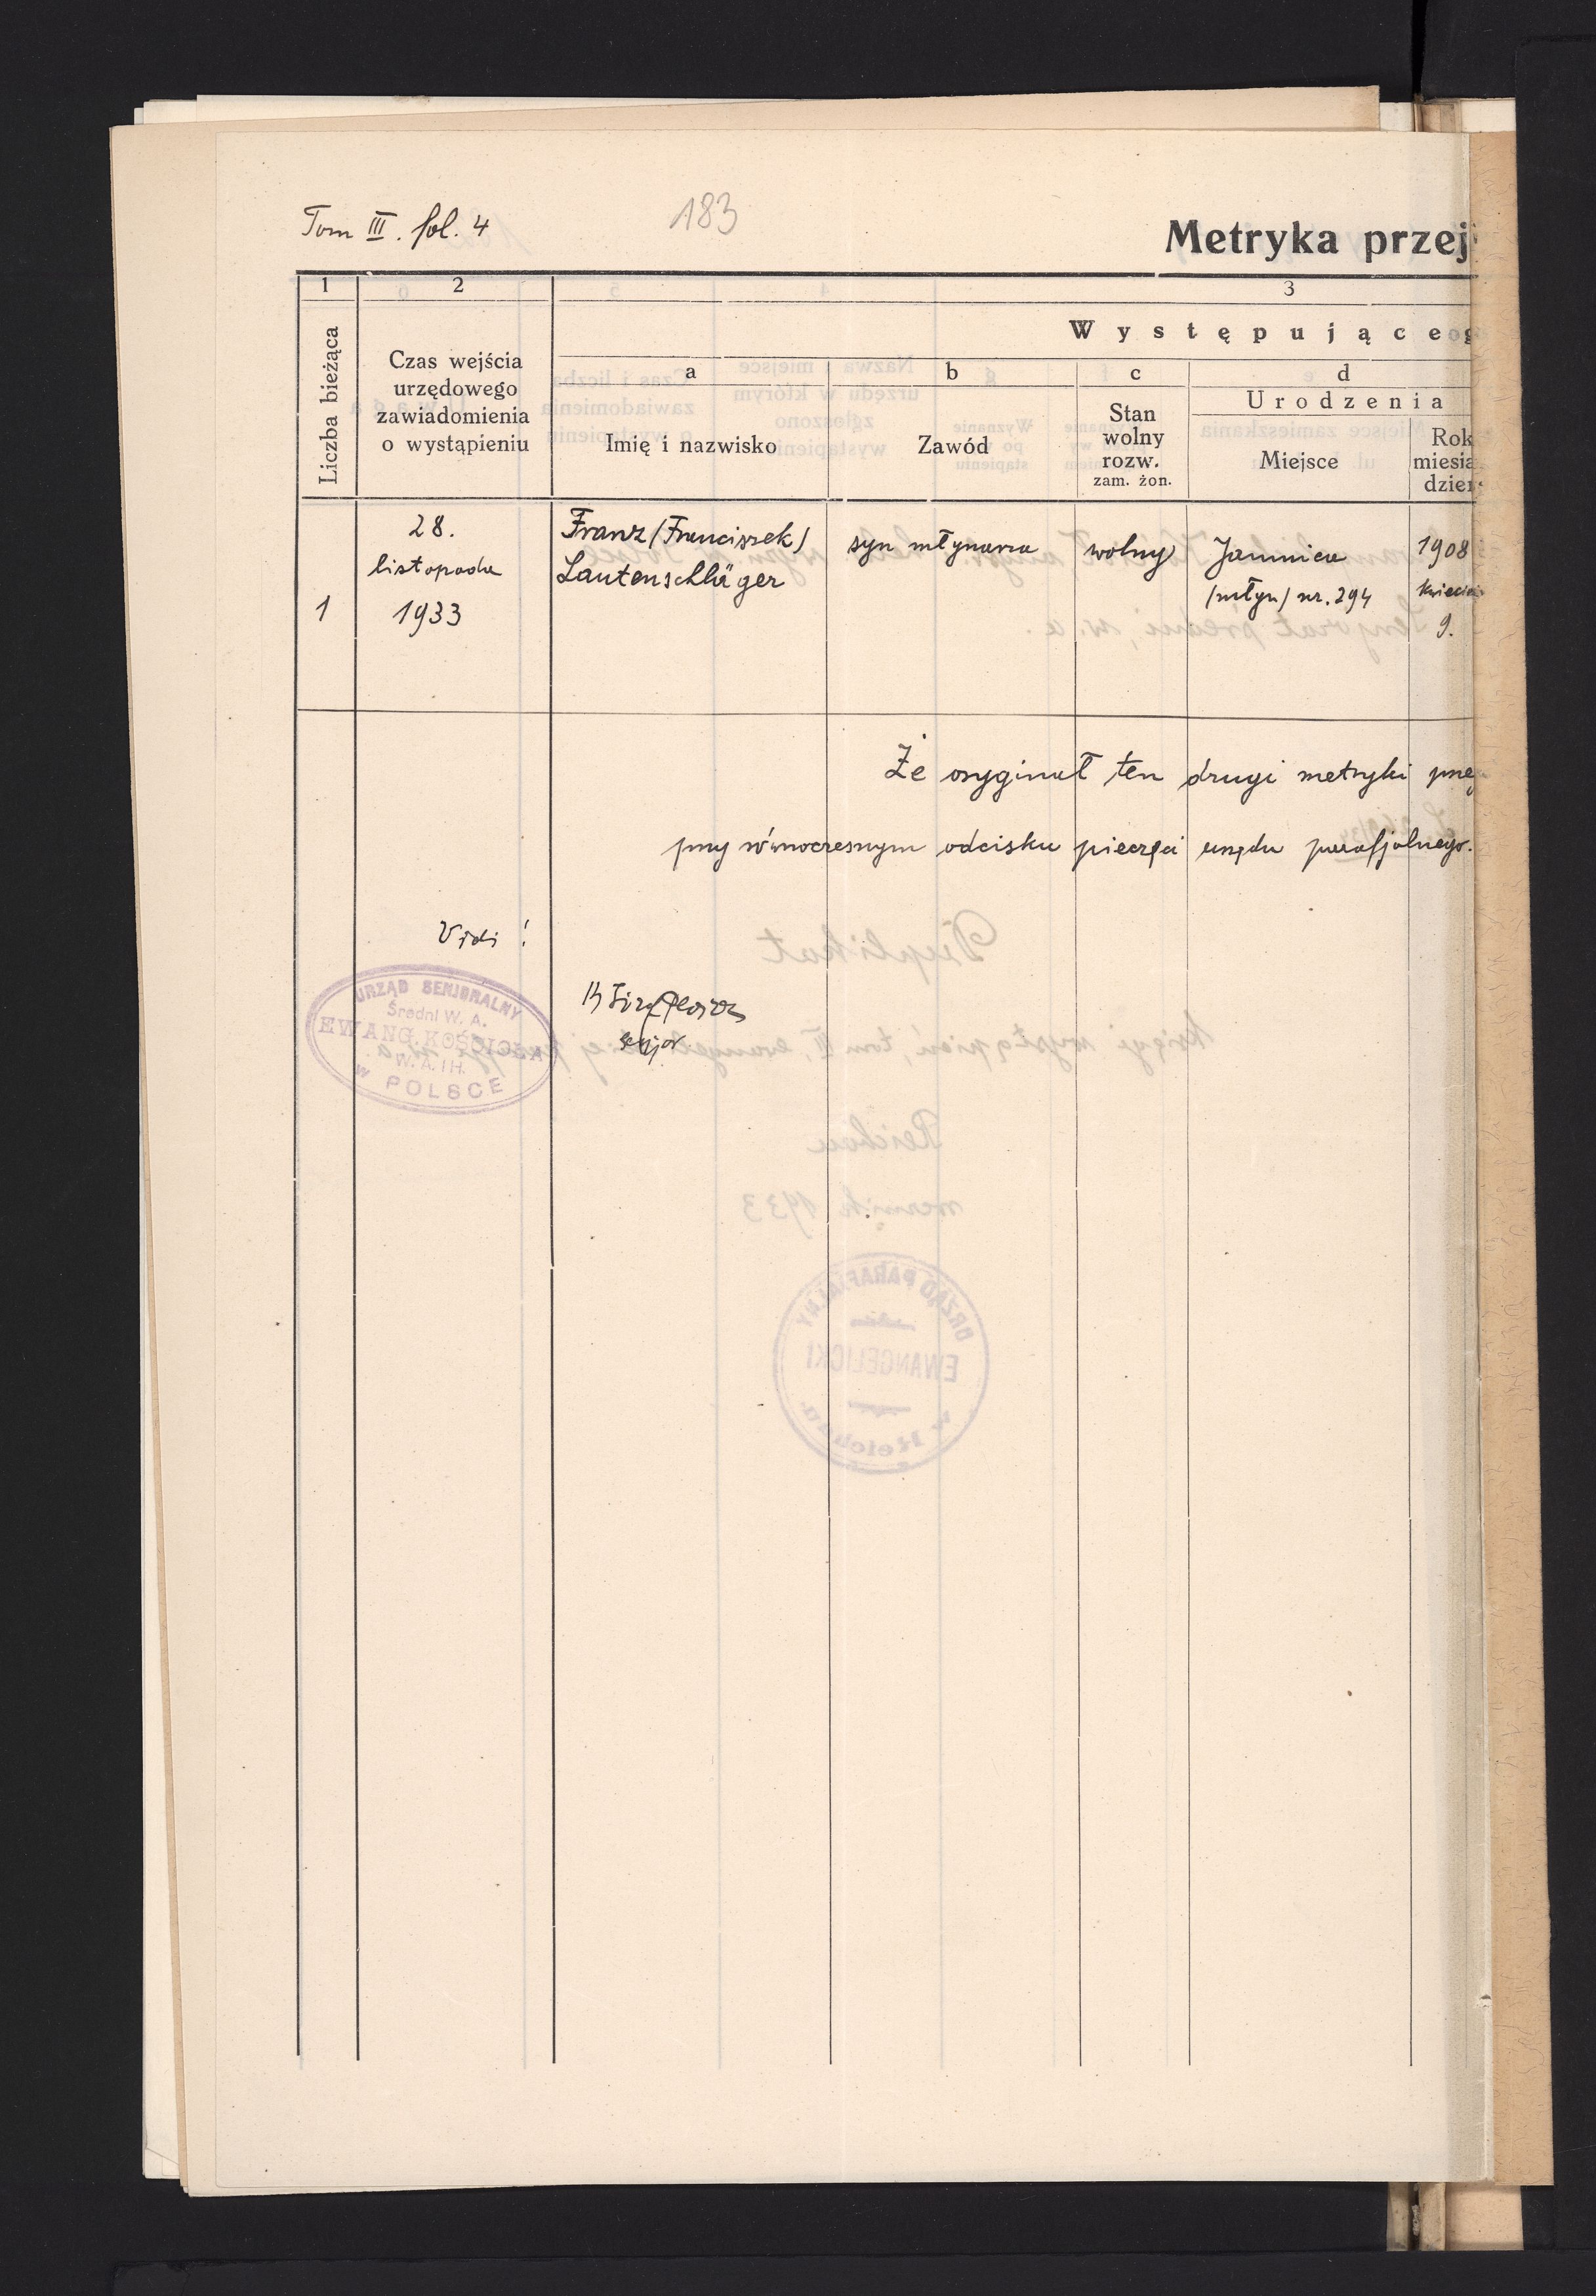 Tom III. fol. 4
183
Metryka przej
1
2
3
Występujące
Liczba bieżąca
Czas wejścia
urzędowego
zawiadomienia
o wystąpieniu
a
b
c
d
Imię i nazwisko
Zawód
Stan
wolny
rozw.
zam. żon.
Urodzenia
Miejsce
Rok
miesią
dzień
1
28.
listopada
1933
Franz (Franciszek)
Lautenschläger
syn młynarza
wolny
Jamnica
(młyn) nr. 294
1908
kwiecień
9.
Że oryginał ten drugi metryki prze
przy równoczesnym odcisku pieczęci urzędu parafjalnego.
Vidi!
senjor
URZĄD SENJORALNY
Średni W. A.
EWANG. KOŚCIOŁA
W. A. I H.
w POLSCE
Duplikat
księgi wystąpień, tom III,
Reichau
1933
URZĄD PARAFJALNY
EWANGELICKI
w Reichau